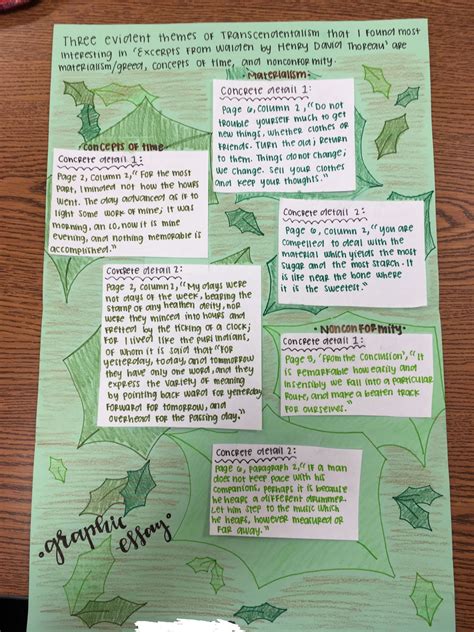 Three evident themes of Transcendentalism that I found most
interesting in 'Excerpts from Walden by Henry David Thoreau' are
materialism/greed, concepts of time, and nonconformity.
·Materialism·
Concrete detail 1:
Page 6, column 2, "Do not
trouble yourself much to get
new things, whether clothes or
friends. Turn the old; return
to them. Things do not change;
we change. Sell your clothes
and keep your thoughts."
Concrete detail 2:
Page 6, column 2, "you are
compelled to deal with the
material which yields the most
sugar and the most starch. It
is life near the bone where
it is the sweetest."
concepts of time
Concrete detail 1:
Page 2, column 2, "For the most
part, I minded not how the hours
went. The day advanced as if to
light some work of mine; it was
morning, an lo, now it is mine
evening, and nothing memorable is
accomplished."
Concrete detail 2:
Page 2, column 2, "My days were
not days of the week, bearing the
stamp of any heathen deity, nor
were they minced into hours and
fretted by the ticking of a clock;
for I lived like the puri indians,
of whom it is said that "for
yesterday, today, and tomorrow
they have only one word, and they
express the variety of meaning
by pointing back ward for yesterday
forward for tomorrow, and
overhead for the passing day."
·Nonconformity·
Concrete detail 1:
Page 5, 'From the Conclusion', "It
is remarkable how easily and
insensibly we fall into a particular
route, and make a beaten track
for ourselves."
Concrete detail 2:
Page 6, paragraph 2, "If a man
does not keep pace with his
companions, perhaps it is because
he hears a different drummer.
Let him step to the music which
he hears, however measured or
far away."
·graphic
essay·